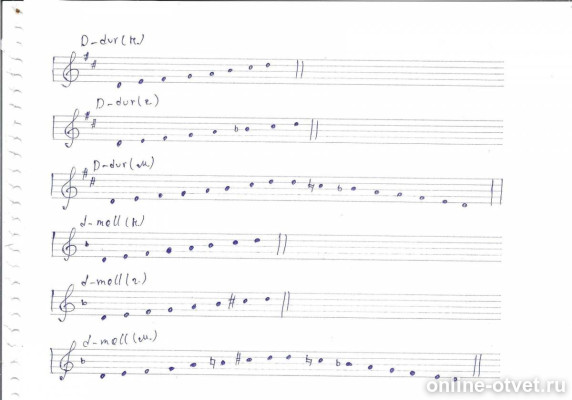 D-dur (н.)
D-dur (г.)
D-dur (м.)
d-moll (н.)
d-moll (г.)
d-moll (м.)
online-otvet.ru